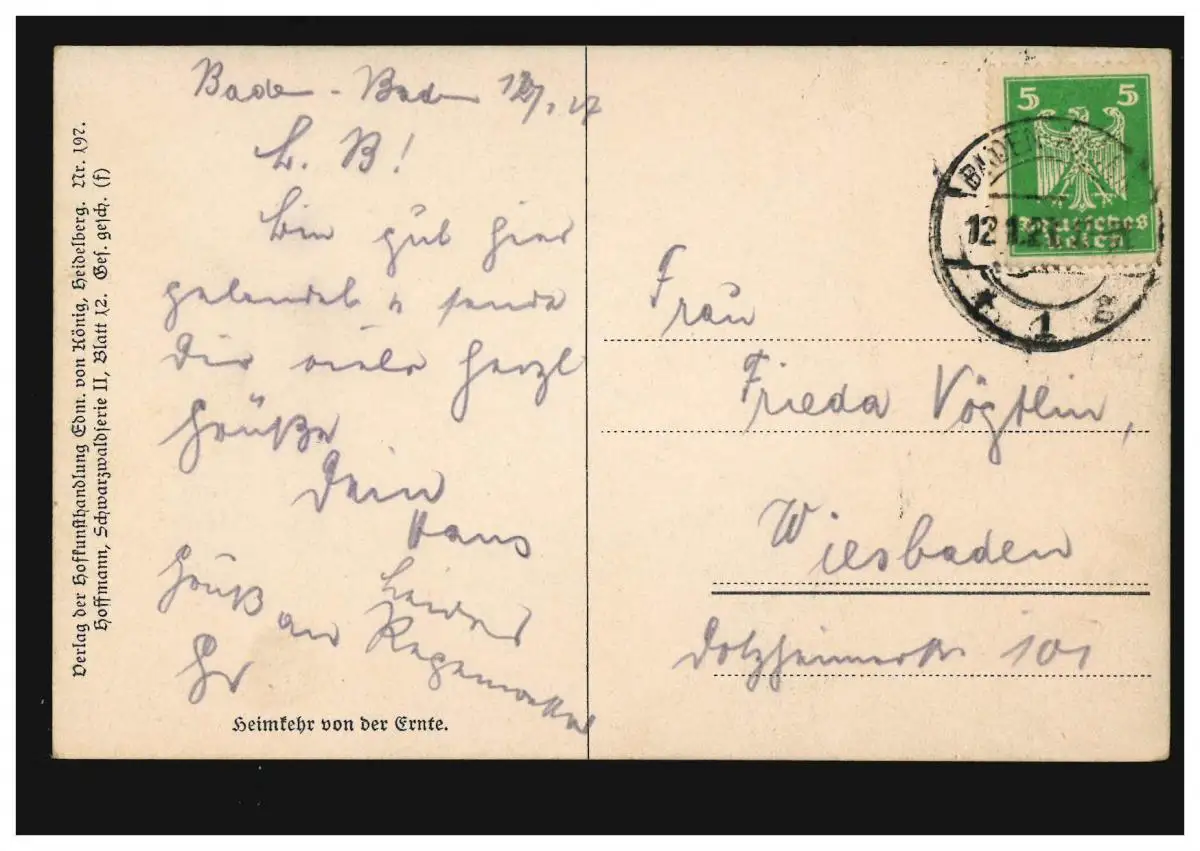 Verlag der Hofkunsthandlung Edm. von König, Heidelberg. Nr. 197.
Hoffmann, Schwarzwaldserie II, Blatt 12. Ges. gesch. (f)
Baden-Baden 27
L. B!
Bin gut hier
gelandet u sende
Dir viele herzl
Grüße
Dein
Hans
Leider
Regenwetter
Gruß an
Gr
Heimkehr von der Ernte.
5 5
Deutsches
Reich
BADEN
12.1.27
1
Frau
Frieda Vögtlin,
Wiesbaden
Dotzheimerstr 101